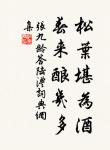 松葉堪為酒
春来釀幾多
張九齡答陸澧詞典網
集